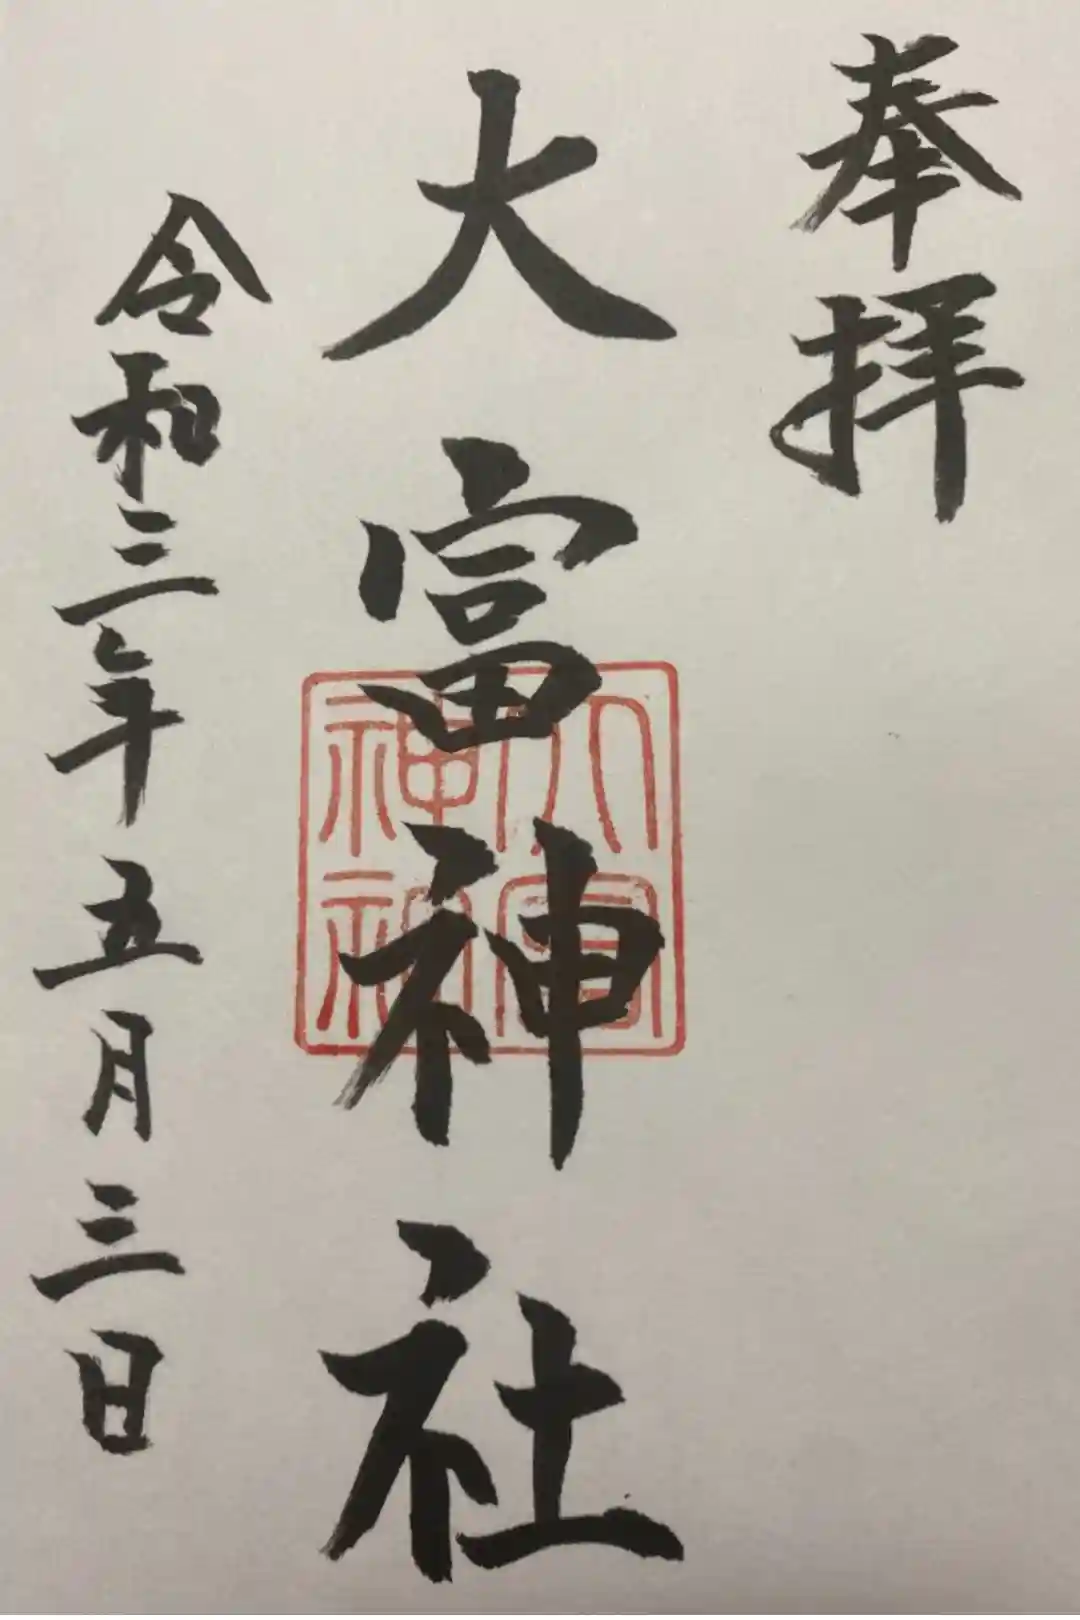 奉拝
大富神社
大富神社
令和三年五月三日